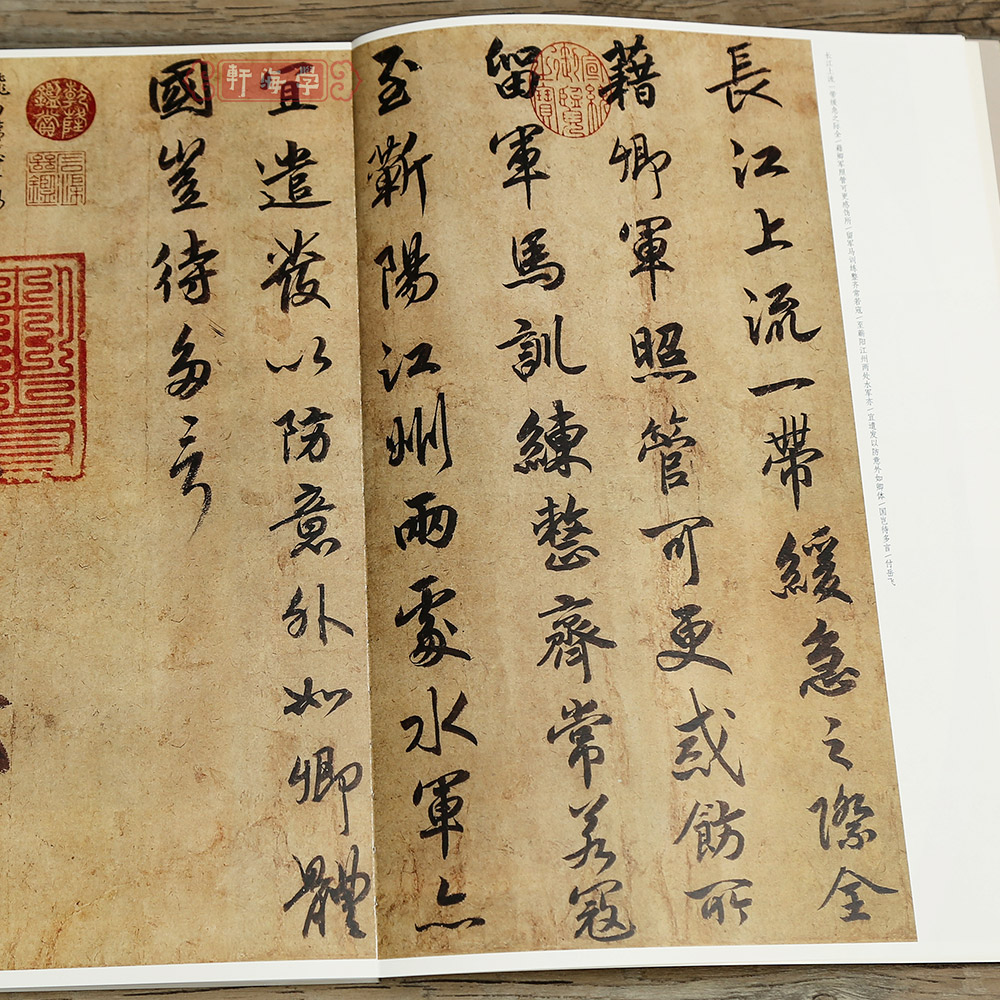 長江上流一帶緩急之際全
藉卿軍照管可更戒飭所
留軍馬訓練整齊常若寇
至蘄陽江州兩處水軍亦
宜遣發以防意外如卿體
國豈待多言
长江上流一带缓急之际全/藉卿军照管可更饬所/留军马训练整齐常若寇/至蕲阳江州两处水军亦/宜遣发以防意外如卿体/国岂待多言/付岳飞
宣統御覽之寶
乾隆鑑賞
學海軒